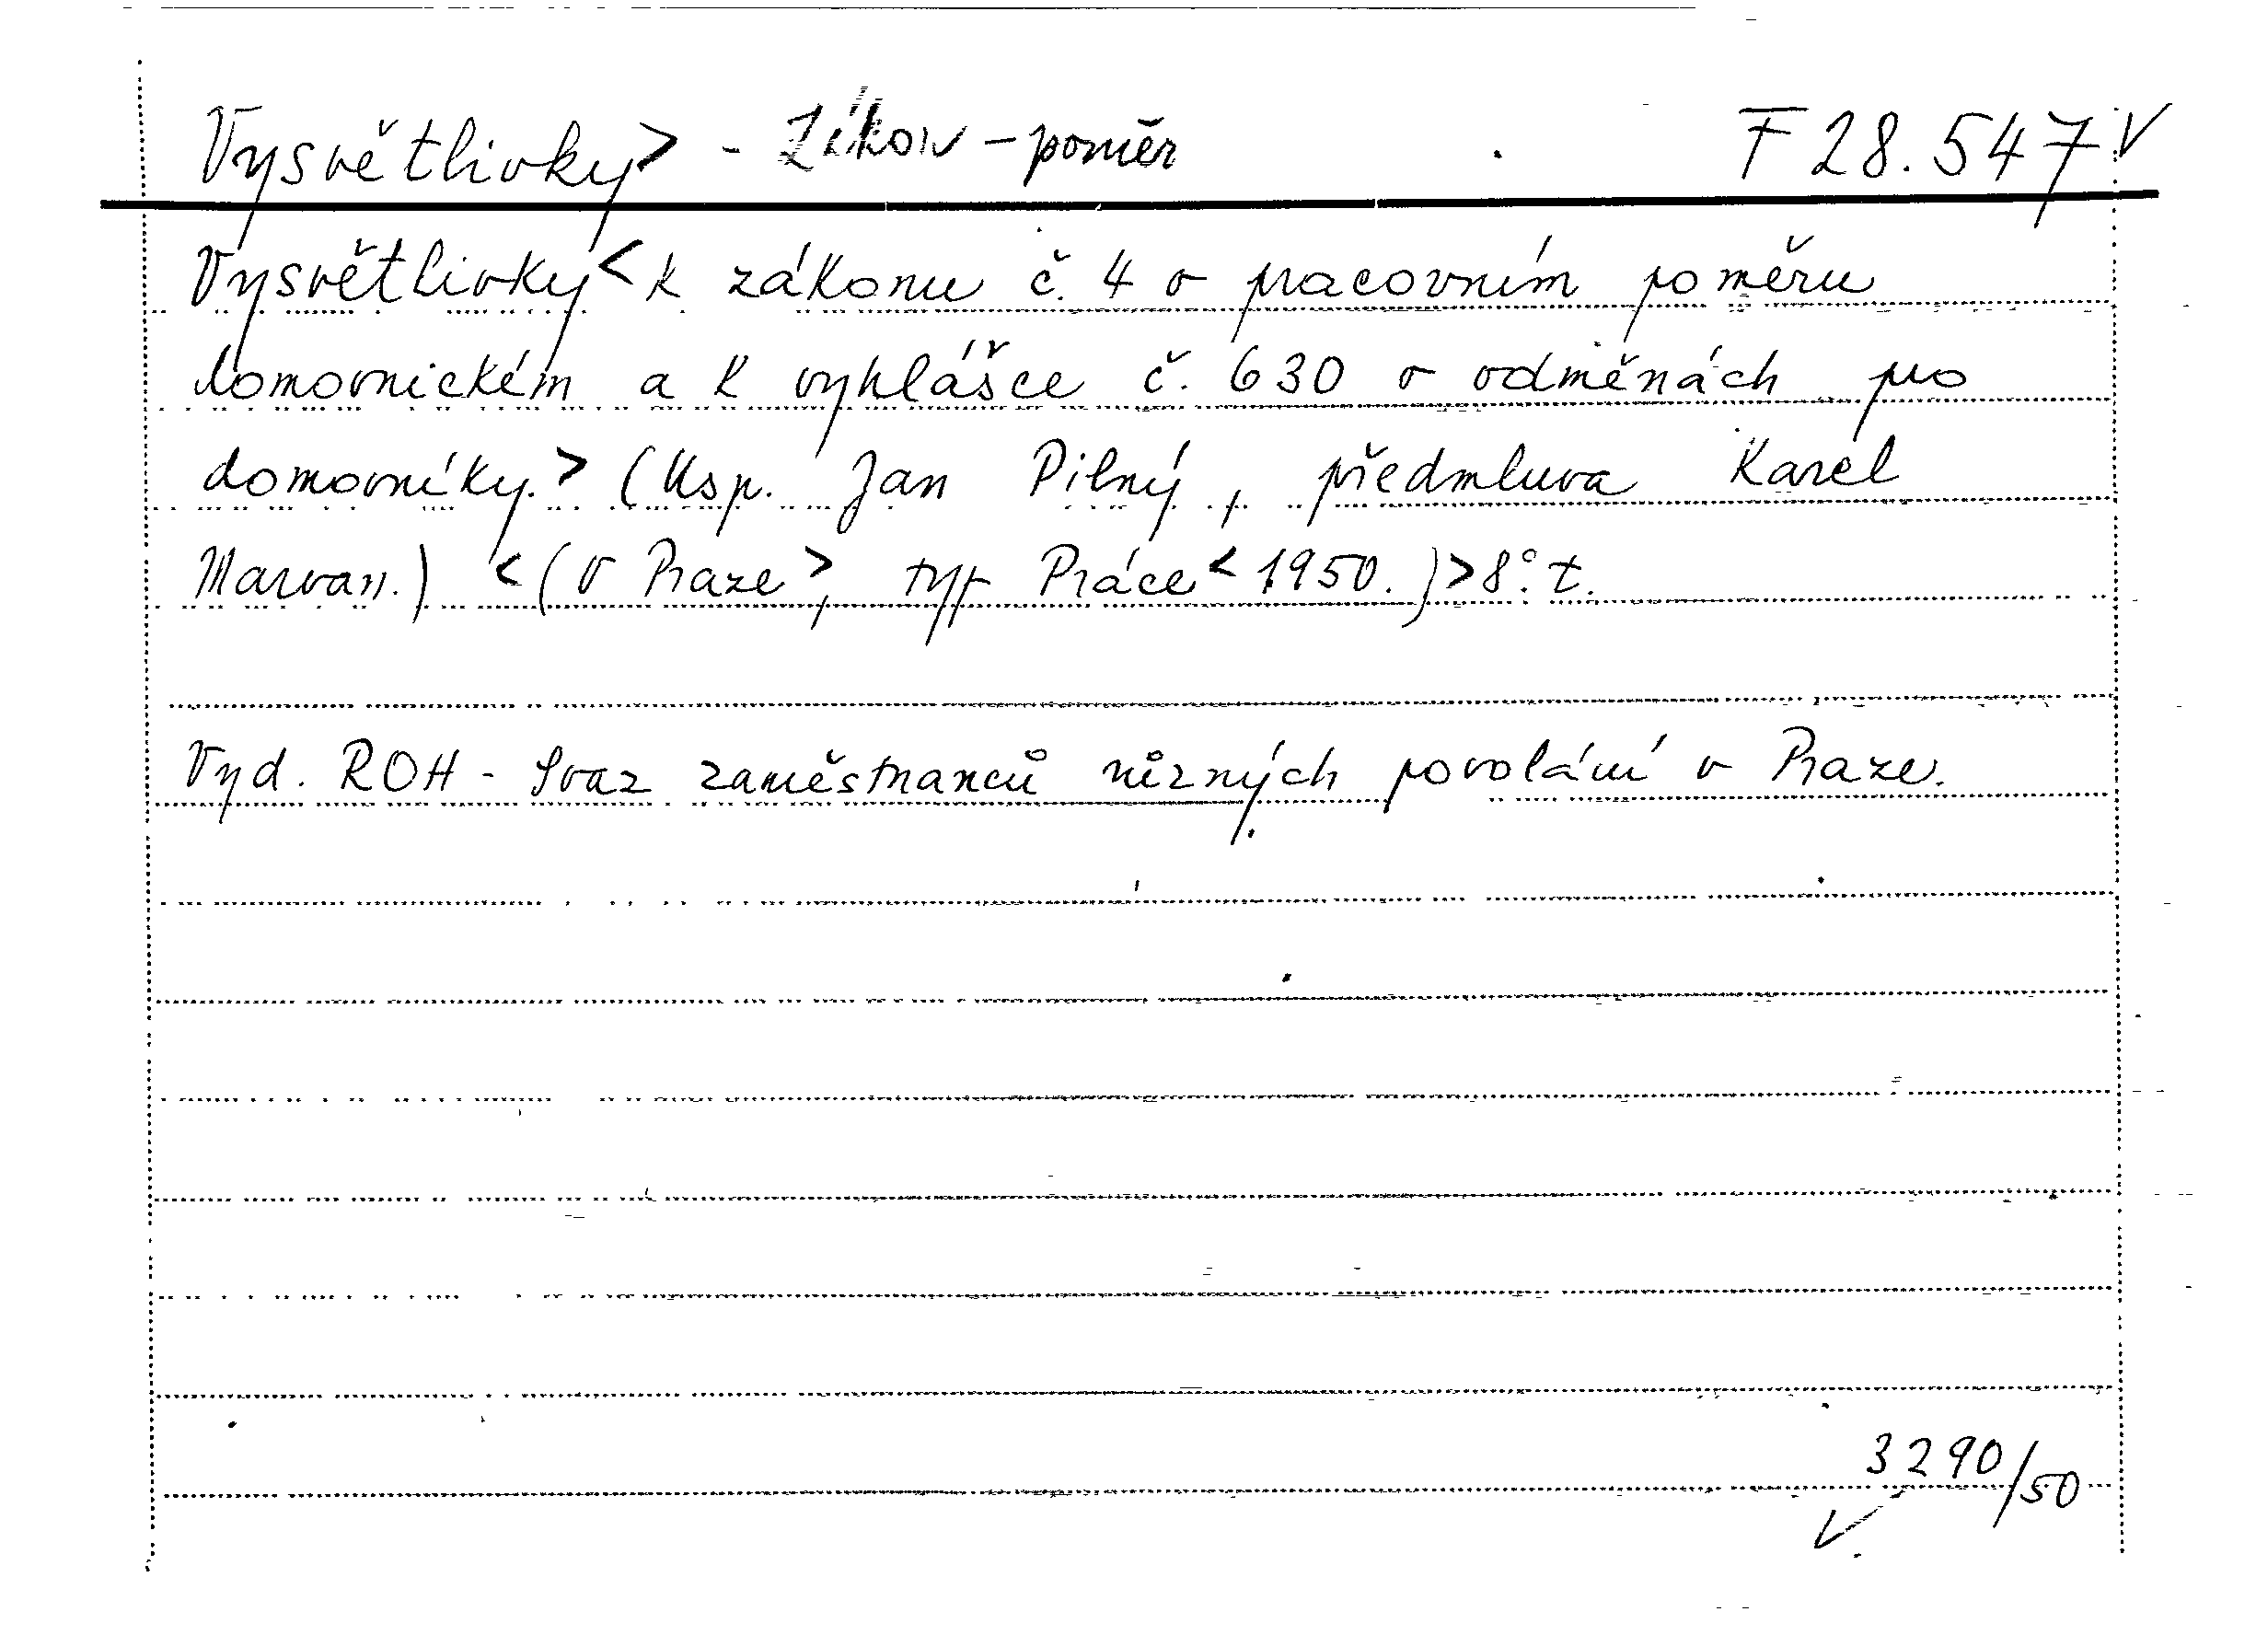 Vysvětlivky> - Zákon - poměr F 28.547 V
Vysvětlivky< k zákonu č. 4 o pracovním poměru
domovnickém a k vyhlášce č. 630 o odměnách pro
domovníky.> (Usp. Jan Pilný, předmluva Karel
Marvan.) <(V Praze>, typ Práce< 1950.)> 8°. t.
Vyd. ROH - Svaz zaměstnanců různých povolání v Praze.
3290/50
V.